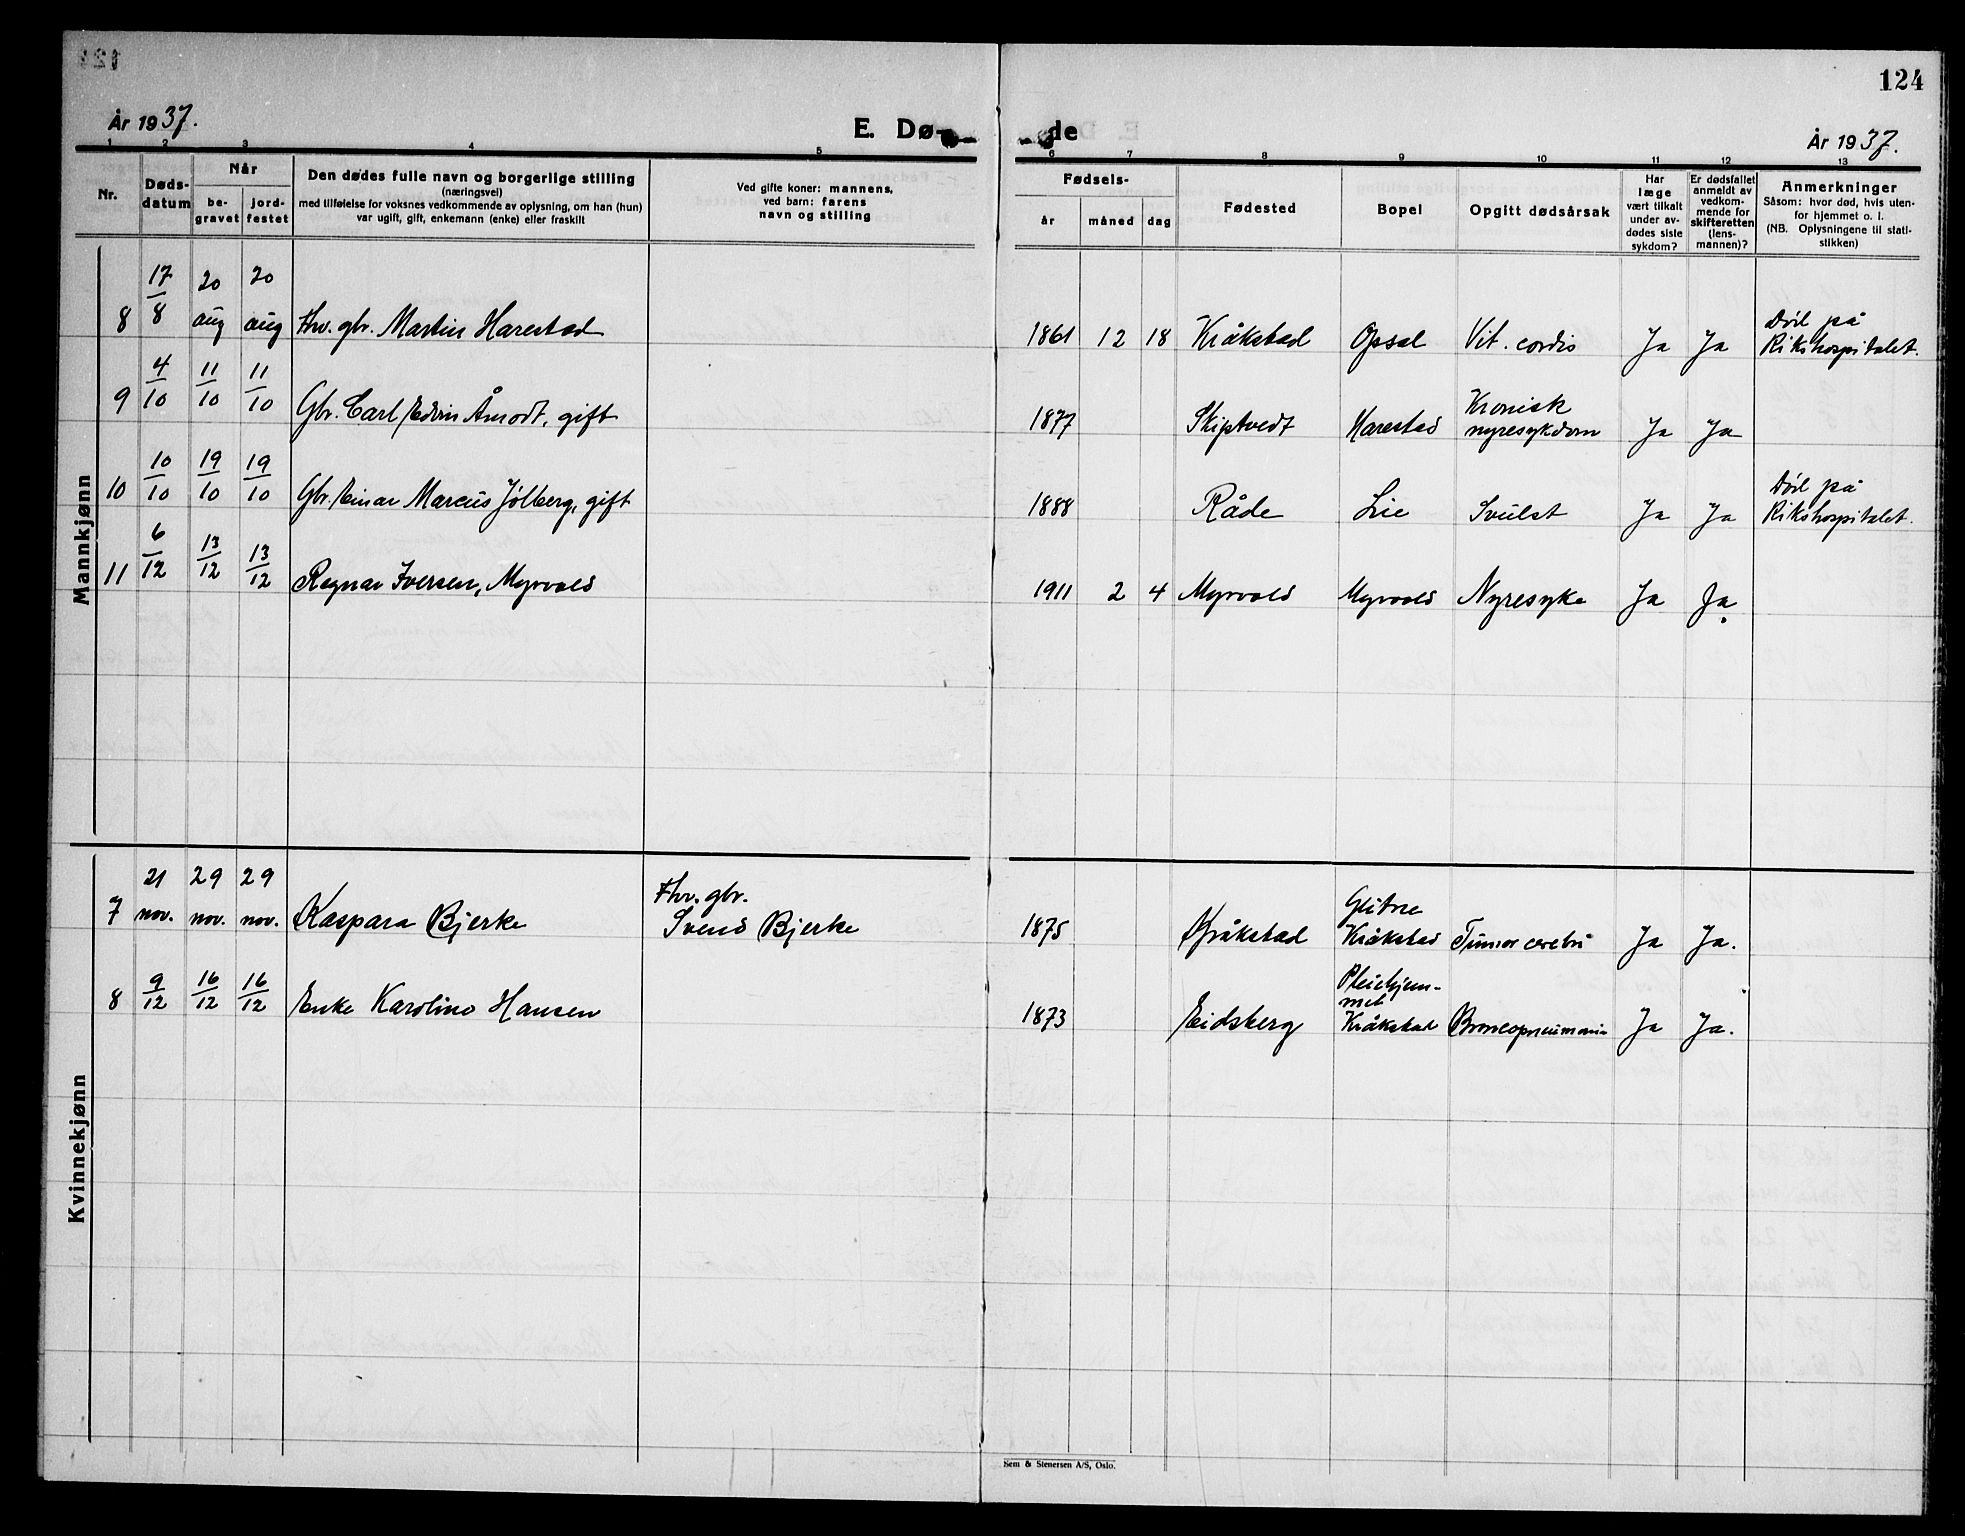 124
År 1937.
E. Døde
År 1937.
1 2 3 4 5 6 7 8 9 10 11 12 13
Nr.
Døds-
datum
Når
be-
gravet
jord-
festet
Den dødes fulle navn og borgerlige stilling
(næringsvei)
med tilføielse for voksnes vedkommende av oplysning, om han (hun)
var ugift, gift, enkemann (enke) eller fraskilt
Ved gifte koner: mannens,
ved barn: farens
navn og stilling
Fødsels-
år måned dag
Fødested
Bopel
Opgitt dødsårsak
Har
læge
vært tilkalt
under av-
dødes siste
sykdom?
Er dødsfallet
anmeldt av
vedkom-
mende for
skifteretten
(lens-
mannen)?
Anmerkninger
Såsom: hvor død, hvis uten-
for hjemmet o. l.
(NB. Oplysningene til stati-
stikken)
Mannkjønn
8 17/8 20 aug 20 aug Fhv. gbr. Martin Harestad 1861 12 18 Kråkstad Opsal Vit. cordis Ja Ja Död på Rikshospitalet.
9 4/10 11/10 11/10 Gbr. Carl Edvin Åmodt, gift 1877 Skiptvedt Harestad Kronisk nyresykdom Ja Ja
10 10/10 19/10 19/10 Gbr. Einar Marcus Jölberg, gift 1888 Råde Lie Svulst Ja Ja Död på Rikshospitalet.
11 6/12 13/12 13/12 Ragnar Iversen, Myrvold 1911 2 4 Myrvold Myrvold Nyresyke Ja Ja
Kvinnekjønn
7 21 nov. 29 nov. 29 nov. Kaspara Bjerke Fhv. gbr. Svend Bjerke 1875 Kråkstad Glitre Kråkstad Tumor cerebri Ja Ja.
8 9/12 16/12 16/12 Enke Karoline Hansen 1873 Eidsberg Pleiehjemmet Kråkstad Broncopneumonia Ja Ja.
Sem & Stenersen A/S, Oslo.